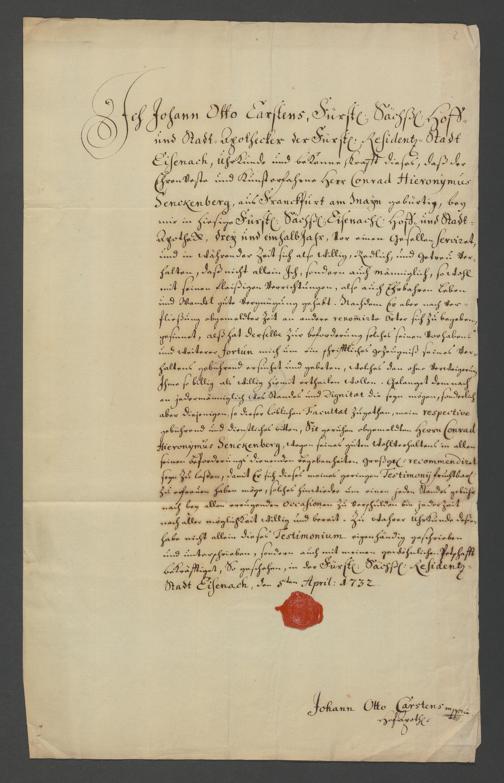 2
Ich Johann Otto Carstens, Fürstl. Sächß. Hoff-
und Stadt-Apothecker der Fürstl. Residentz-Stadt
Eisenach, uhrkunde und bekenne Krafft dieses, daß der
Ehren Veste und Kunsterfahrne Herr Conrad Hieronymus
Senckenberg, aus Franckfurt am Mayn gebürtig, bey
mir in hiesige Fürstl. Sächß. Eisenach. Hoff- und Stadt-
Apotheck, drey und einhalb Jahr, vor einen Gesellen Serviret,
und in währender Zeit sich also willig, Redlich, und Getreu ver-
halten, daß nicht allein Ich, sondern auch männiglich, so wohl
mit seinen fleißigen Verrichtungen, also auch Ehrbahren Leben
und Wandel gute Vergnügung gehabt. Nachdem Er aber nach Ver-
fließung obgemeldter Zeit an andere renomirte Örter sich zu begeben
gesinnet, alß hat derselbe zur beforderung solches seines Vorhabens
und weiterer fortun mich um ein schrifftliches gezeugniß seines Ver-
haltens gebührend ersuchet und gebeten, welches dan ohne Verweigerung
Ihme so billig als willig hiemit ertheilen wollen. Gelanget demnach
an jedermänniglich Standes und Dignitat die seyn mögen, sonderlich
aber diejenigen so dieser löblichen Facultat zugethan, mein respective
gebührend und dienstliches bitten, Sie geruhen obgemeldten Herrn Conrad
Hieronymus Senckenberg, wegen seines guten Wohlverhaltens in allen
seinen Beförderungs Begebenheiten Großg. recommendiret
seyn zu laßen, damit Er sich dieses meines geringen Testimonij fruchtbar
zu erfreuen haben möge, solches hinwieder um einen jeden Standes gebühr
nach bey allen Occasionen zu verschulden bin jederzeit
nach aller möglichkeit willig und bereit. Zu wahrer Uhrkunde dessen
habe nicht allein dieses Testimonium eigenhändig geschrieben
und unterschrieben, sondern auch mit meinen gewöhnlichen Petschafft
bekräfftiget, So geschehen, in der Fürstl. Sächß. Residentz-
Stadt Eisenach, den 5ten April: 1732
Johann Otto Carstens mppria
Hofapoth.